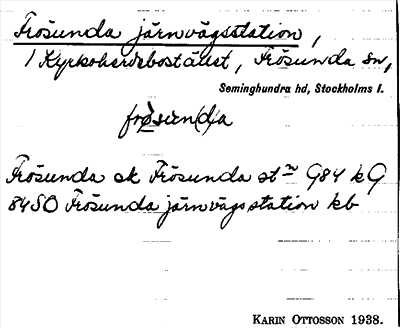 Frösunda järnvägsstation,
i Kyrkoherdebostället, Frösunda sn,
Seminghundra hd, Stockholms l.
frøsun(d)a
Frösunda sk Frösunda stn G84 kG
84SO Frösunda järnvägsstation kb
KARIN OTTOSSON 1938.